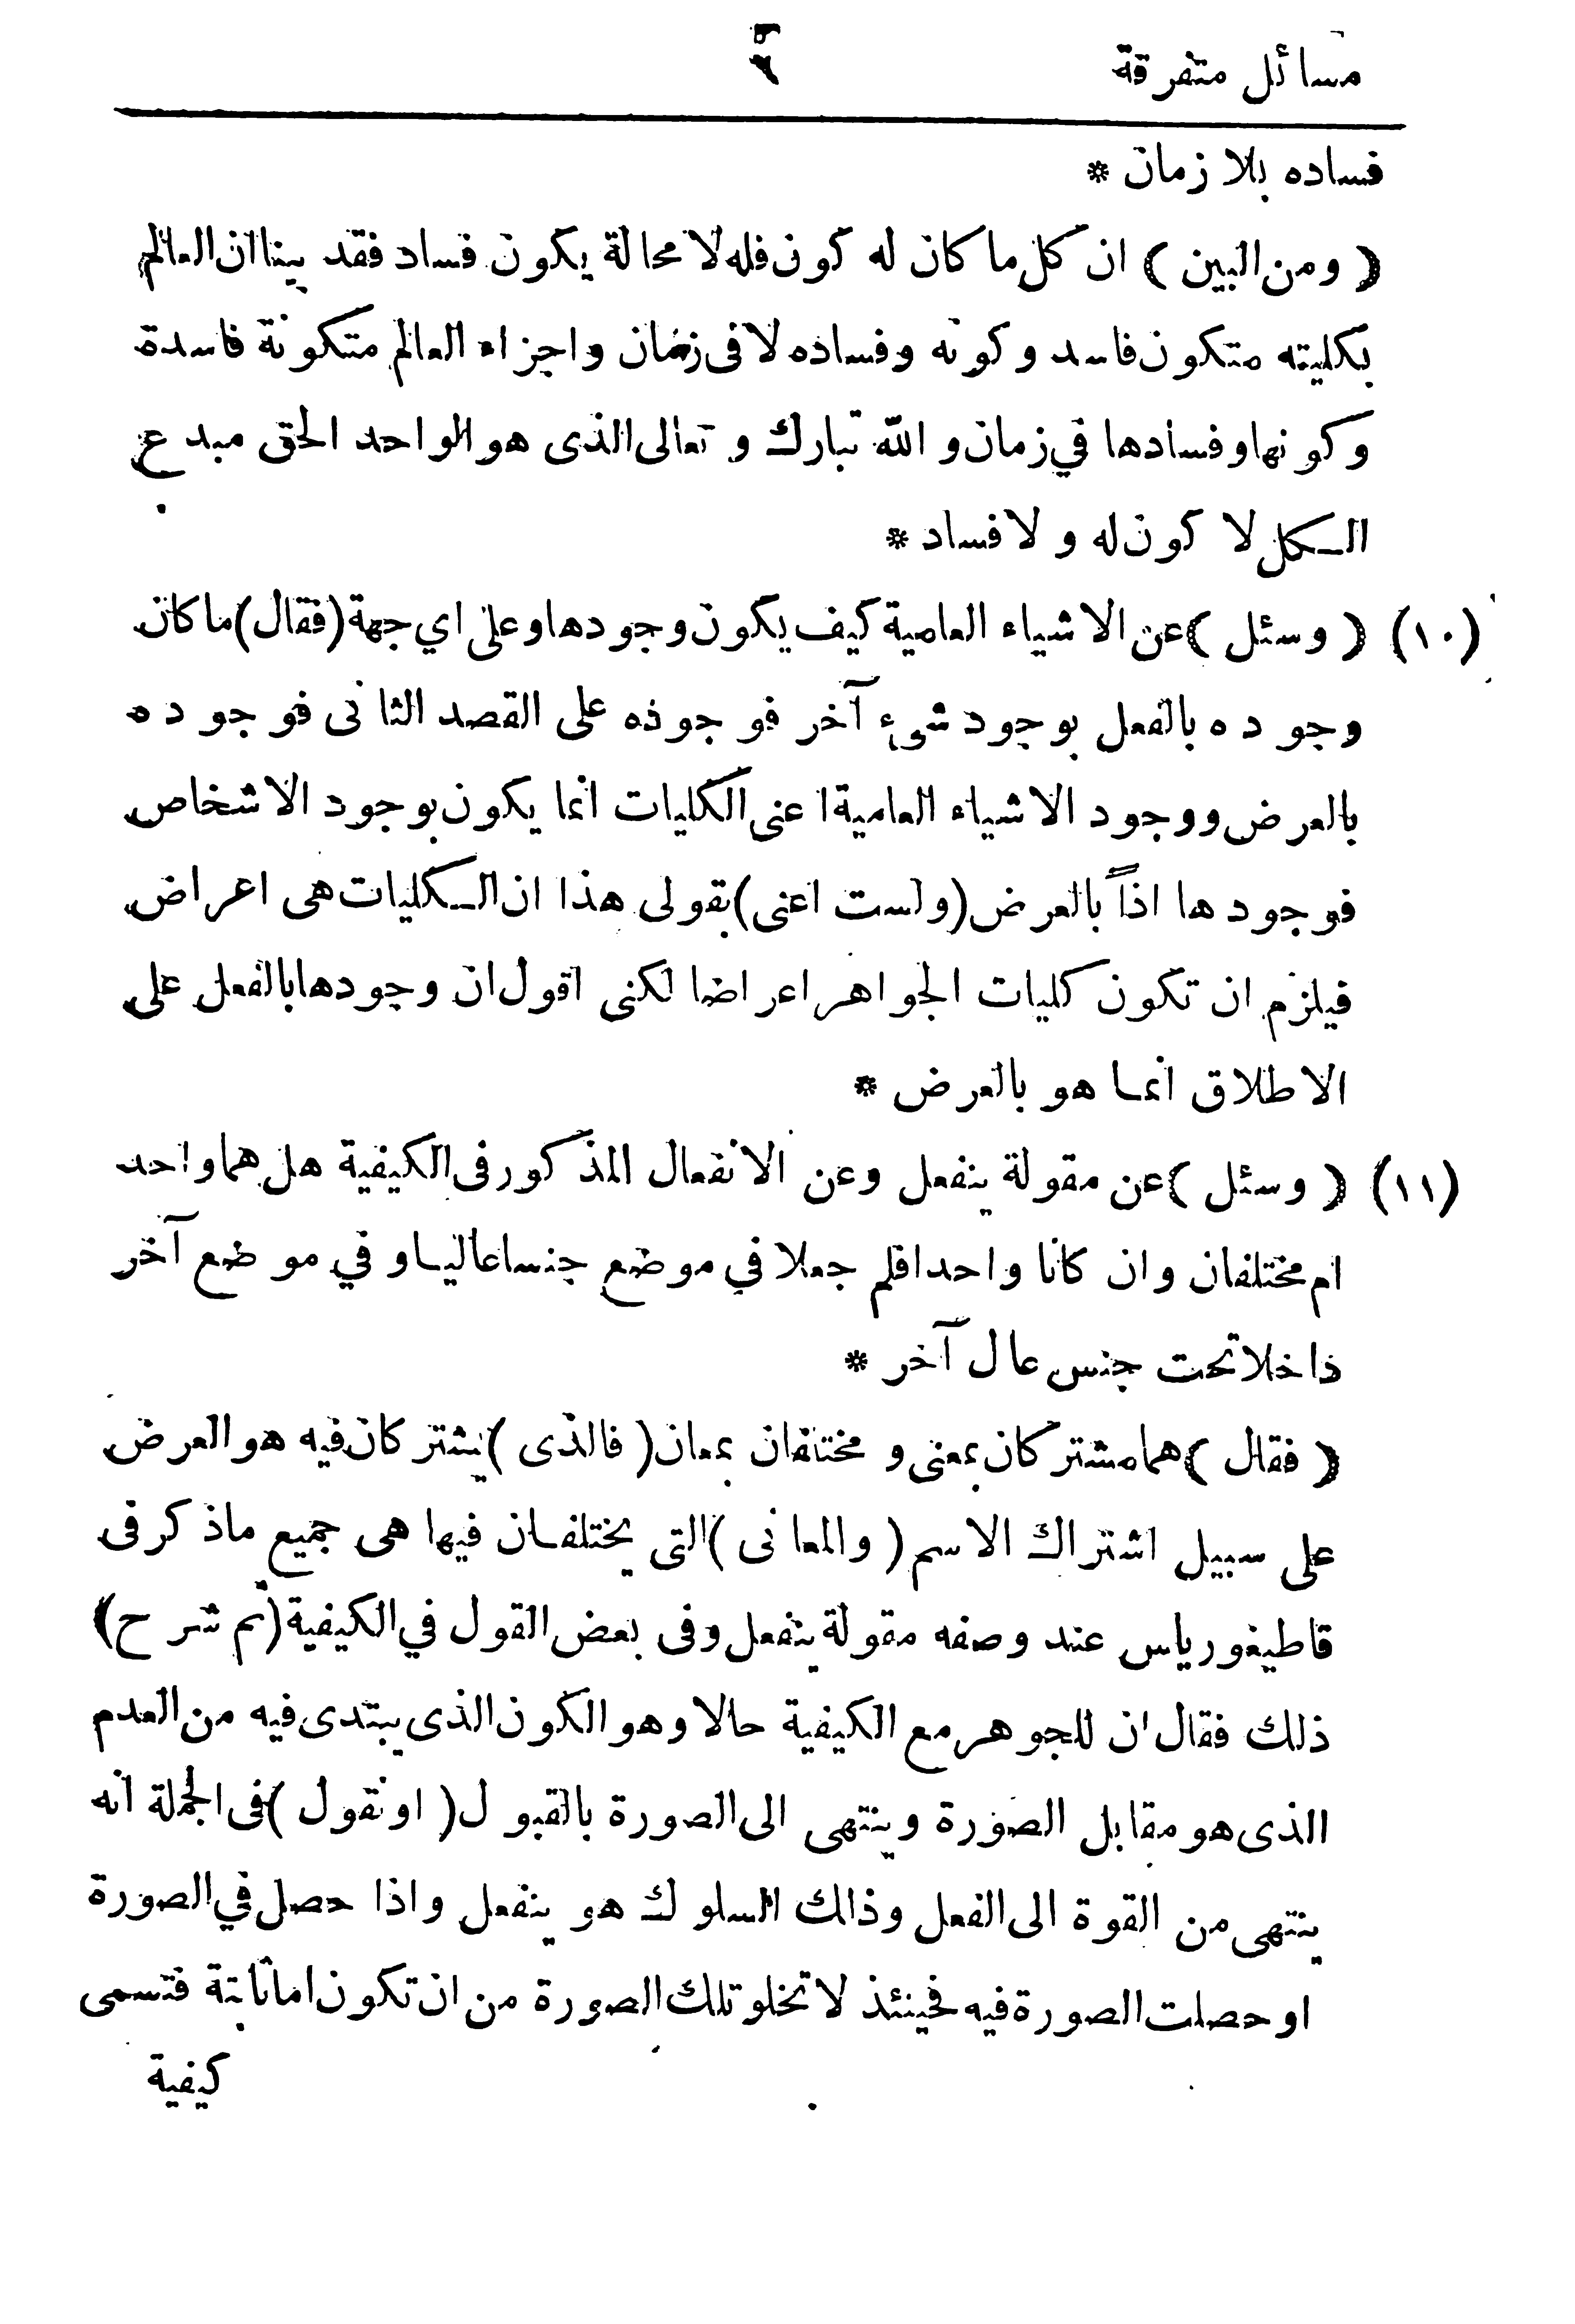 مسائل متفرقة
فساده بلا زمان *
( ومن البين ) ان كل ما كان له كون فله لا محالة يكون فساد فقد بينا ان العالم
بكليته متكون فاسد وكونه وفساده لا فى زمان واجزاء العالم متكونة فاسدة
وكونها وفسادها في زمان و الله تبارك و تعالى الذى هو الواحد الحق مبدع
الـكل لا كون له و لا فساد *
(١٠) ( وسئل ) عن الاشياء العامية كيف يكون وجودها وعلى اي جهة (فقال) ما كان
وجوده بالفعل بوجود شىء آخر فوجوده على القصد الثانى فوجوده
بالعرض ووجود الاشياء العامية اعنى الكليات انما يكون بوجود الاشخاص
فوجودها اذاً بالعرض (ولست اعنى) بقولى هذا ان الـكليات هى اعراض
فيلزم ان تكون كليات الجواهر اعراضا لكنى اقول ان وجودها بالفعل على
الاطلاق انمـا هو بالعرض *
(١١) ( وسئل ) عن مقولة ينفعل وعن الانفعال المذكور فى الكيفية هل هما واحد
ام مختلفان وان كانا واحدا فلم جعلا في موضع جنسا عاليـا وفي موضع آخر
داخلا تحت جنس عال آخر *
( فقال ) هما مشتركان بمعنى و مختلفان بمعان ( فالذى ) يشتركان فيه هو العرض
على سبيل اشتراك الاسم ( والمعانى ) التى يختلفـان فيها هى جميع ماذكر فى
قاطيغورياس عند وصفه مقولة ينفعل وفى بعض القول في الكيفية (ثم شرح)
ذلك فقال ان للجوهر مع الكيفية حالا وهو الكون الذى يبتدى فيه من العدم
الذى هو مقابل الصورة وينتهى الى الصورة بالقبول ( او نقول ) فى الجملة انه
ينتهى من القوة الى الفعل وذالك السلوك هو ينفعل واذا حصل في الصورة
او حصلت الصورة فيه فحينئذ لا تخلو تلك الصورة من ان تكون اما ثابتة فتسمى
كيفية